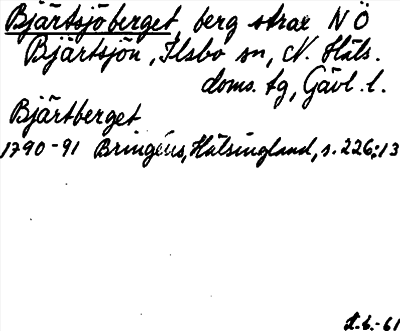 Bjärtsjöberget, berg strax N Ö
Bjärtsjön, Ilsbo sn, N. Häls.
doms. tg, Gävl. l.
Bjärtberget
1790-91 Bringéus, Hälsingland, s. 226:13
L.b.-61